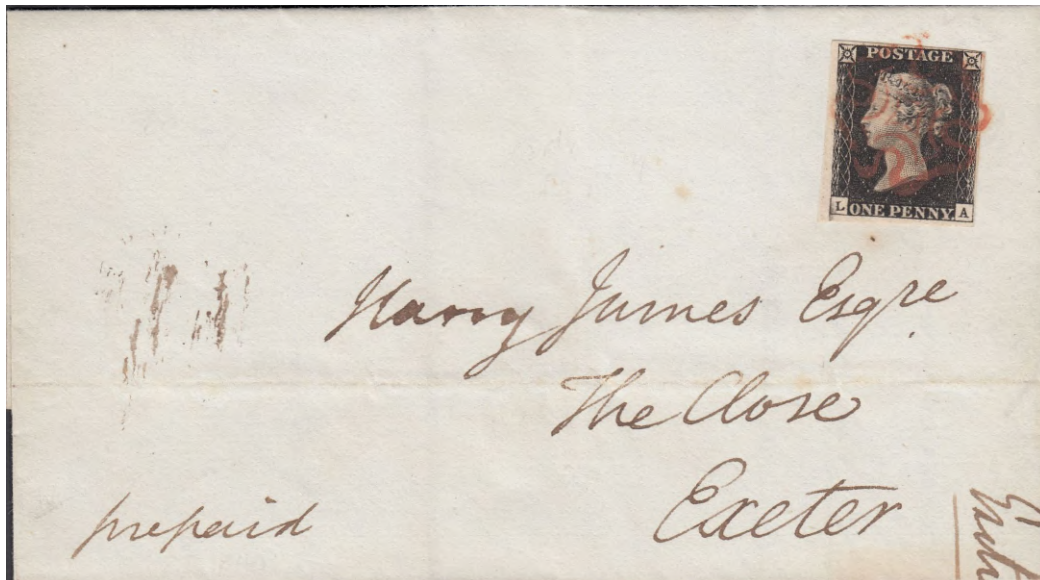 POSTAGE
L ONE PENNY A
Harry James Esqre
The Close
Exeter
prepaid